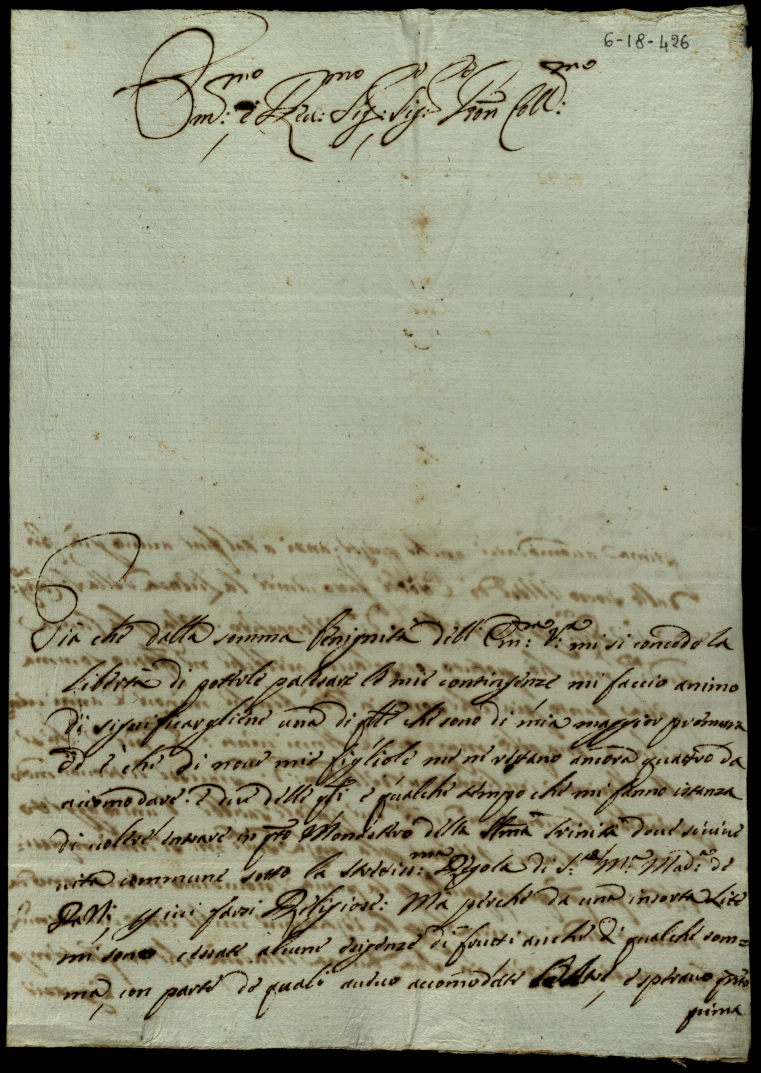 6-18-426
Em:mo e Reu:mo Sig:re Sig:re Pron Coll:mo
Già che dalla somma benignità dell'Em:za V:ra mi si concede la
libertà di poterle palesare le mie contingenze mi faccio animo
di significargliene una di che sono di mia maggior premura
ed è che di noue mie figliole me ne restano ancora quattro da
accomodare. E due delle è qualche tempo che mi fanno istanza
di uolere entrare in Monastero della Trinità doue si uiue
uita commune sotto la Regola di S. M. Mad. de
Pazzi, iui farsi Religiose: Ma perche da una insorta Lite
mi sono cessate alcune esigenze di frutti anche di qualche som=
ma, con parte de quali aueuo accomodate, e sperauo
prima